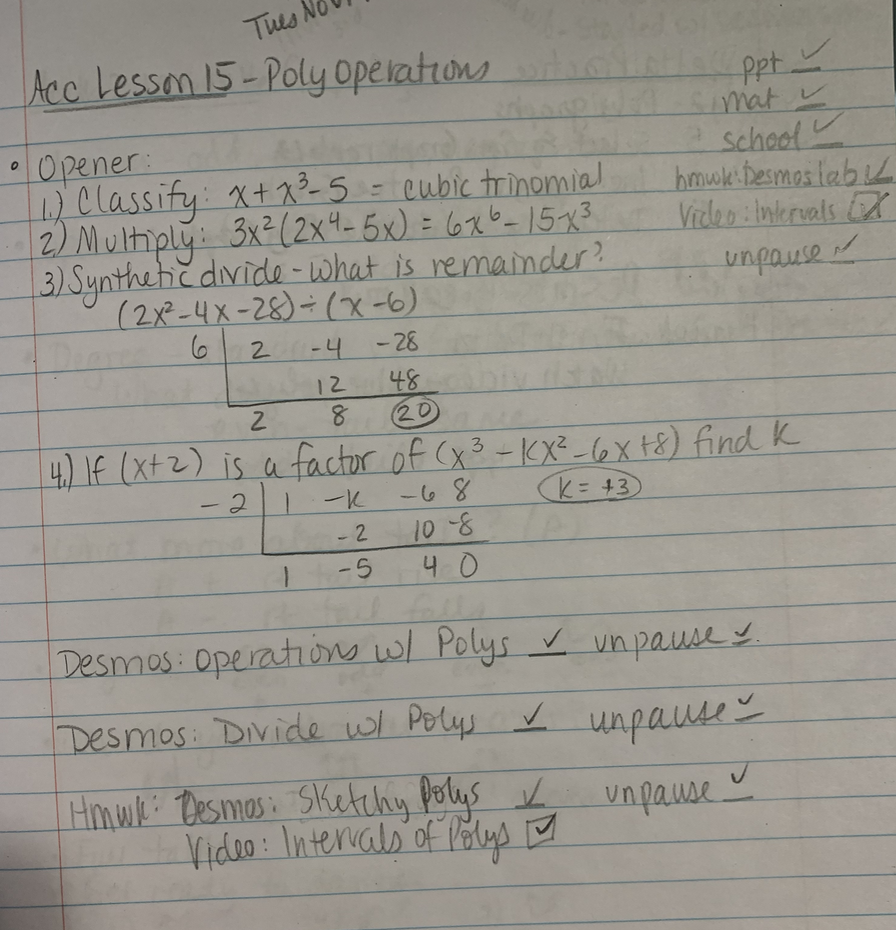 Tues Nov
Acc Lesson 15 - Poly Operations
ppt ✓
mat ✓
school ✓
hmwk: Desmos lab ✓
Video: Intervals ☑
unpause ✓
• Opener:
1.) Classify: x + x³ - 5 = cubic trinomial
2) Multiply: 3x²(2x⁴ - 5x) = 6x⁶ - 15x³
3) Synthetic divide - what is remainder?
(2x² - 4x - 28) ÷ (x - 6)
6 | 2 -4 -28
12 48
2 8 20
4.) If (x+2) is a factor of (x³ - kx² - 6x + 8) find k
-2 | 1 -k -6 8 k = +3
-2 10 -8
1 -5 4 0
Desmos: Operations w/ Polys ✓ unpause ✓.
Desmos: Divide w/ Polys ✓ unpause ✓
Hmwk: Desmos: Sketchy Polys ✓ unpause ✓
Video: Intervals of Polys ☑